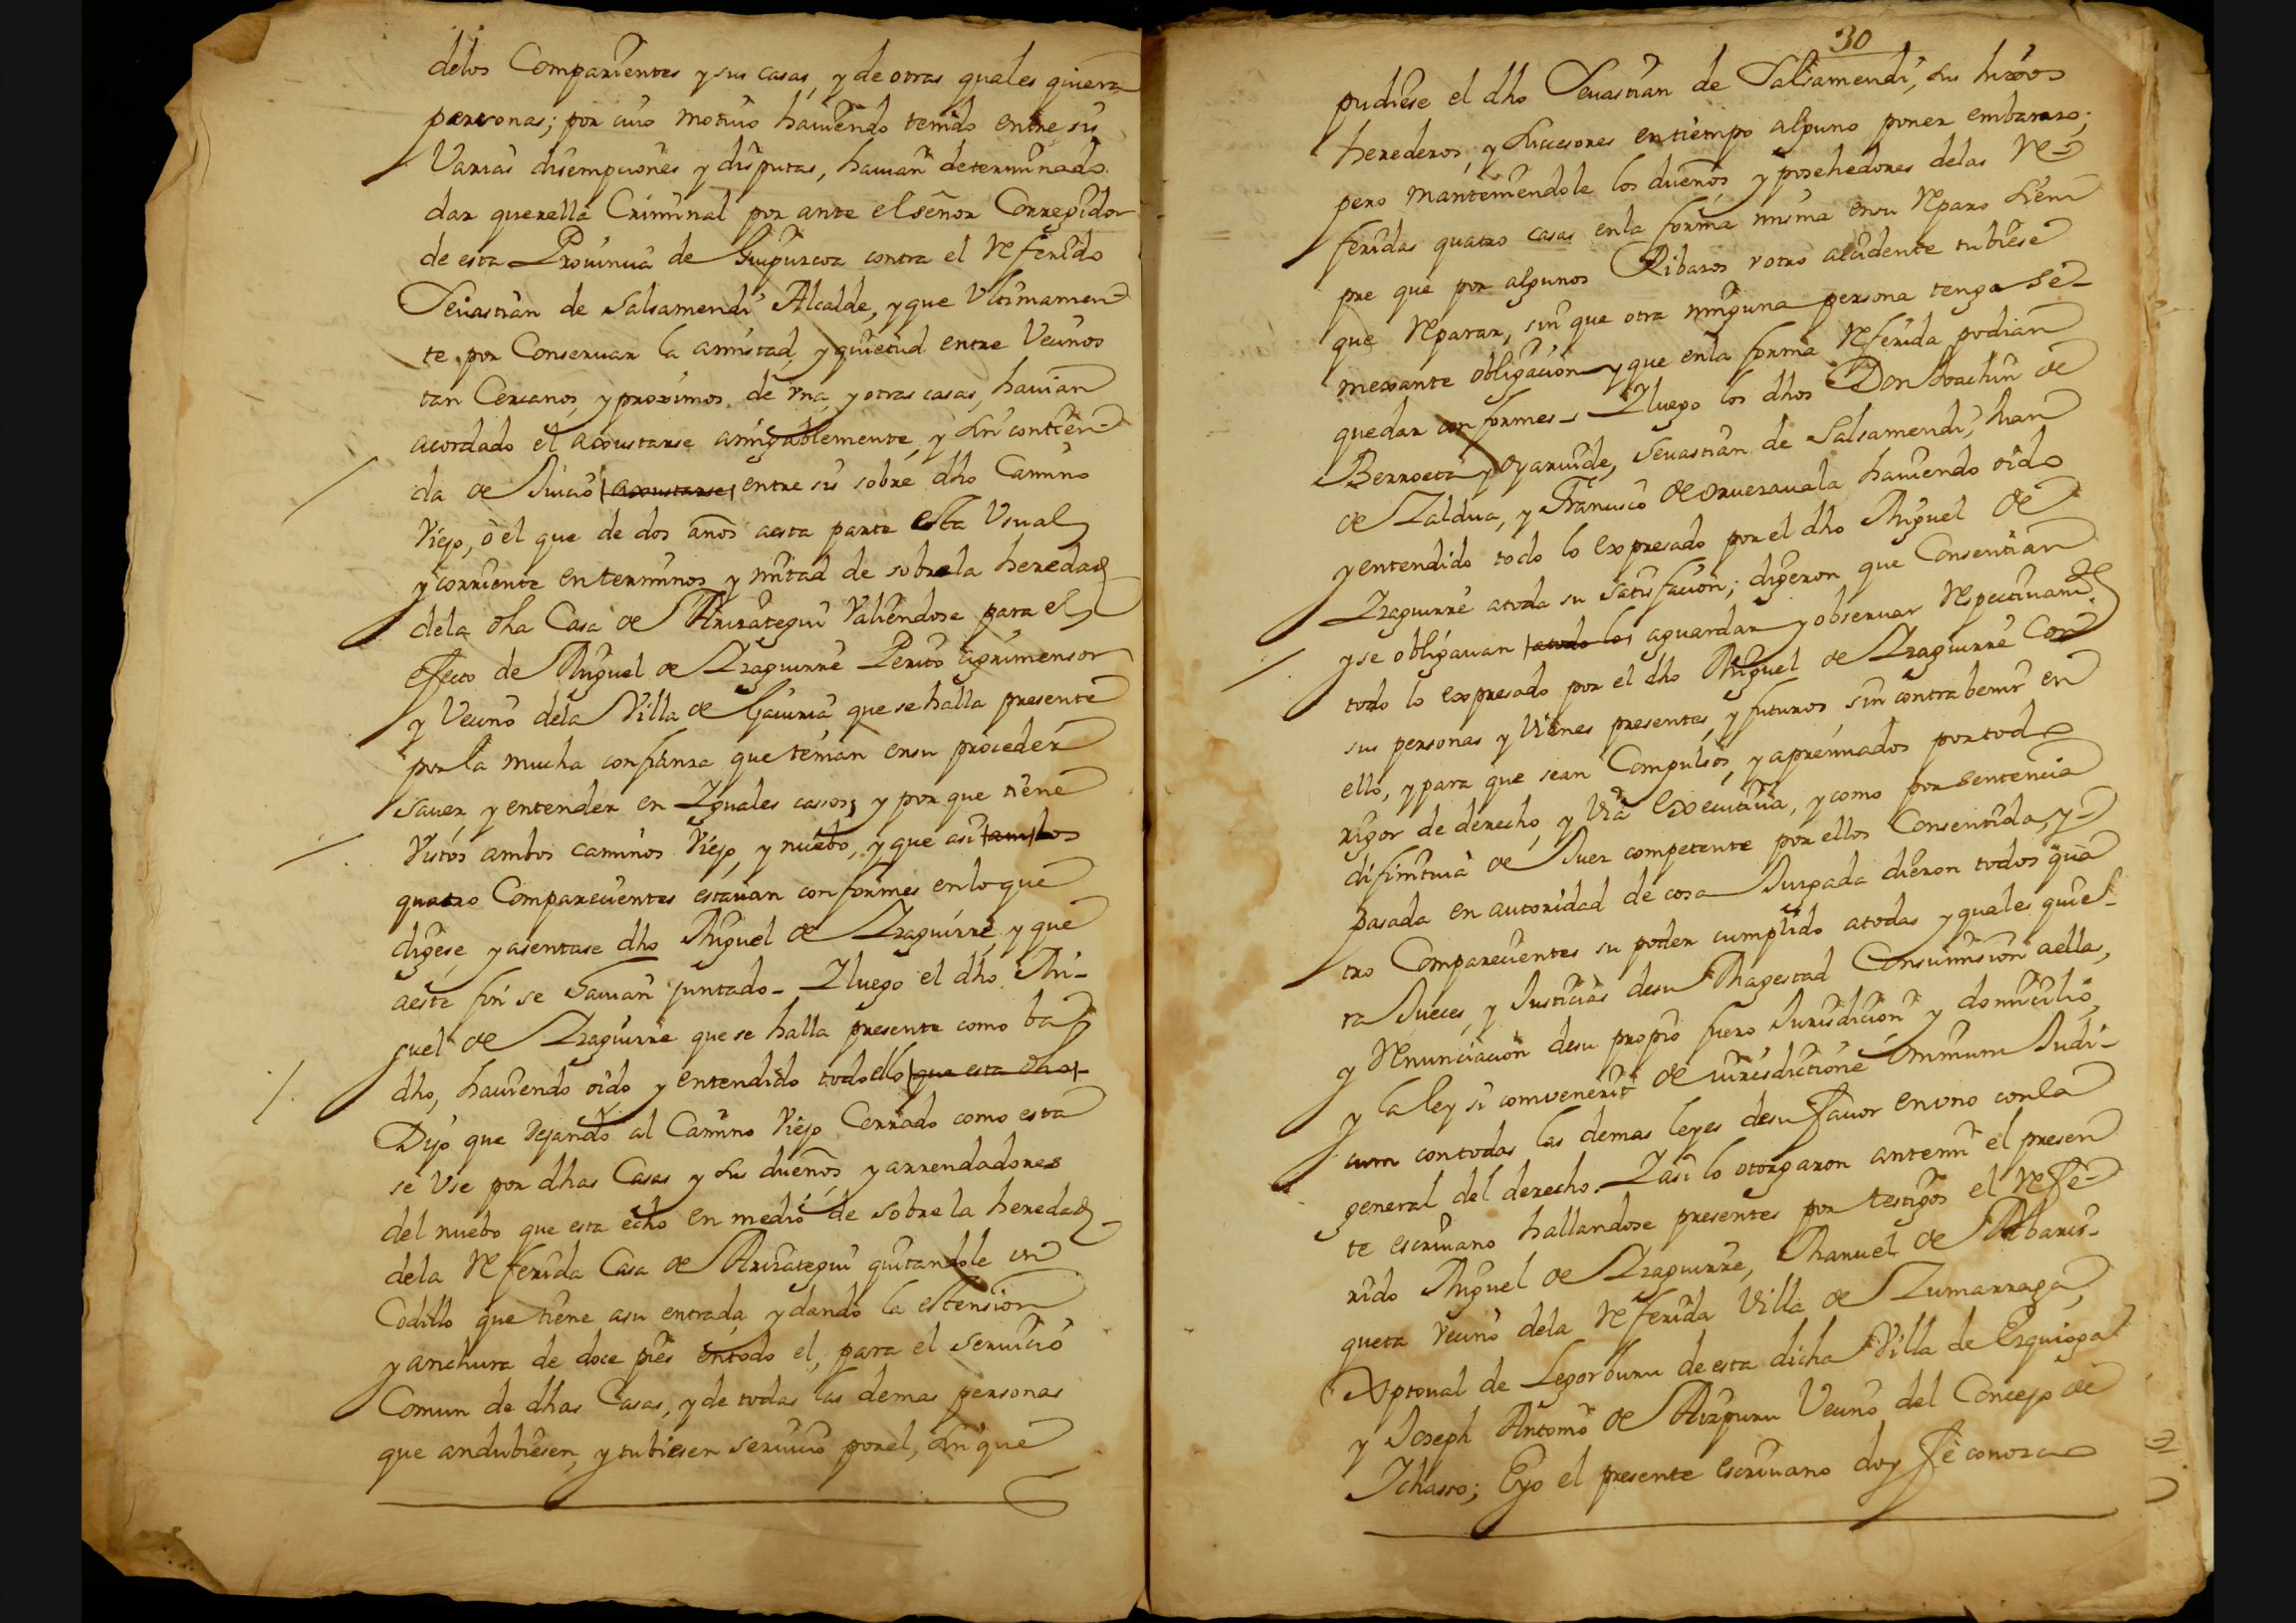 delos Comparientes y sus casas, y de otras quales quiera
personas; por cuio motiuo hauiendo tenido entre sis
Varias disempciones y disputas, hauian determinado
dar querella Criminal por ante el señor Corregidor
de esta Prouincia de Guipuzcoa contra el Referido
Seuastian de Salsamendi Alcalde, y que Ultimamen-
te por Conseruar la amistad, y quietud entre Vecinos
tan Cercanos, y proximos de vna, y otras casas, hauian
acordado el axustarse amigablemente, y sin contien-
da de Juicio axustarse entre sis sobre dho Camino
Viejo, ò el que de dos años aesta parte esta Usual
y corriente enterminos y mitad de sobrela heredad
dela dha Casa de Arizategui Valiendose para el
efecto de Miguel de Yzaguirre Perito agrimensor
y Vecino dela Villa de Gauiria que se halla presente
por la mucha confianza que tenian ensu proceder
sauer y entender en Yguales cassos, y por que tiene
Vistos ambos caminos Viejo, y nuebo, y que asi am los
quatro Comparecientes estauan conformes enloque
digese, y asentase dho Miguel de Yzaguirre, y que
aeste fin se hauian juntado - Yluego el dho Mi-
guel de Yzaguirre que se halla presente como ba
dho, hauiendo oido, y entendido todo ello que esta dho -
Dijo que dejando al Camino Viejo Cerrado como esta
se Vse por dhas Casas y sus dueños, y arrendadores
del nuebo que esta echo en medio de sobre la heredad -
dela Referida Casa de Arizategui quitandole un
Codillo que tiene asu entrada, y dando la estension
y anchura de doce pies entodo el, para el seruicio
Comun de dhas Casas, y de todas las demas personas
que andubiesen, y tubiesen seruicio porel, sin que
30
pudiese el dho Seuastian de Salsamendi, sus hixos
herederos, y sucesores entiempo alguno poner embarazo;
pero manteniendole los dueños, y posehedores delas Re-
feridas quatro casas enla forma misma ensu Reparo siem
pre que por algunos Ribazos v otro acidente tubiese
que Reparar, sin que otra ninguna persona tenga se-
mexante obligacion y que enla forma Referida podian
quedar conformes - Yluego los dhos Don Joachin de
Berroeta y Oyaruide, Seuastian de Salsamendi, Juan
de Zaldua, y Francisco de Oruezauala hauiendo oido
y entendido todo lo expresado por el dho Miguel de
Yzaguirre atoda su satisfacion; digeron que Consentian
y se obligauan atodo lo aguardar y obseruar Respectiuamte
todo lo expresado por el dho Miguel de Yzaguirre Con
sus personas y Vienes presentes, y futuros sin contrabenir en
ello, y para que sean Compulsos, y apremiados portodo
rigor de derecho, y Via Executiua, y como por sentencia
difinitiua de Juez competente por ellos Consentida, y-
pasada en autoridad de cosa Juzgada dieron todos qua
tro Comparecientes su poder cumplido atodas y quales quie-
ra Jueces, y Justicias desu Magestad Consumision aellas,
y Renunciacion desu propio fuero Jurisdicion y domicilio,
y la ley si conuenerit de iurisdictione omnium Judi-
cum contodas las demas leyes desu fauor envno conla
general del derecho. Yasi lo otorgaron antemi el presen
te escriuano hallandose presentes por testigos el Refe-
rido Miguel de Yzaguirre, Manuel de Abaris-
queta vecino dela Referida Villa de Zumarraga,
Xptoual de Legorburu de esta dicha Villa de Ezquioga
y Joseph Antonio de Aizpuru Vecino del Concejo de
Ichasso; Eyo el presente escriuano doy fé conozco